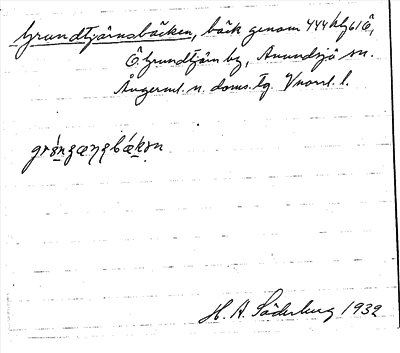 Grundtjärnsbäcken, bäck genom 444 hfg 61 Ö,
Ö. Grundtjärn by, Anundsjö sn.
Ångerml. n. doms. tg. Vnorrl. l.
H. A. Söderberg 1932